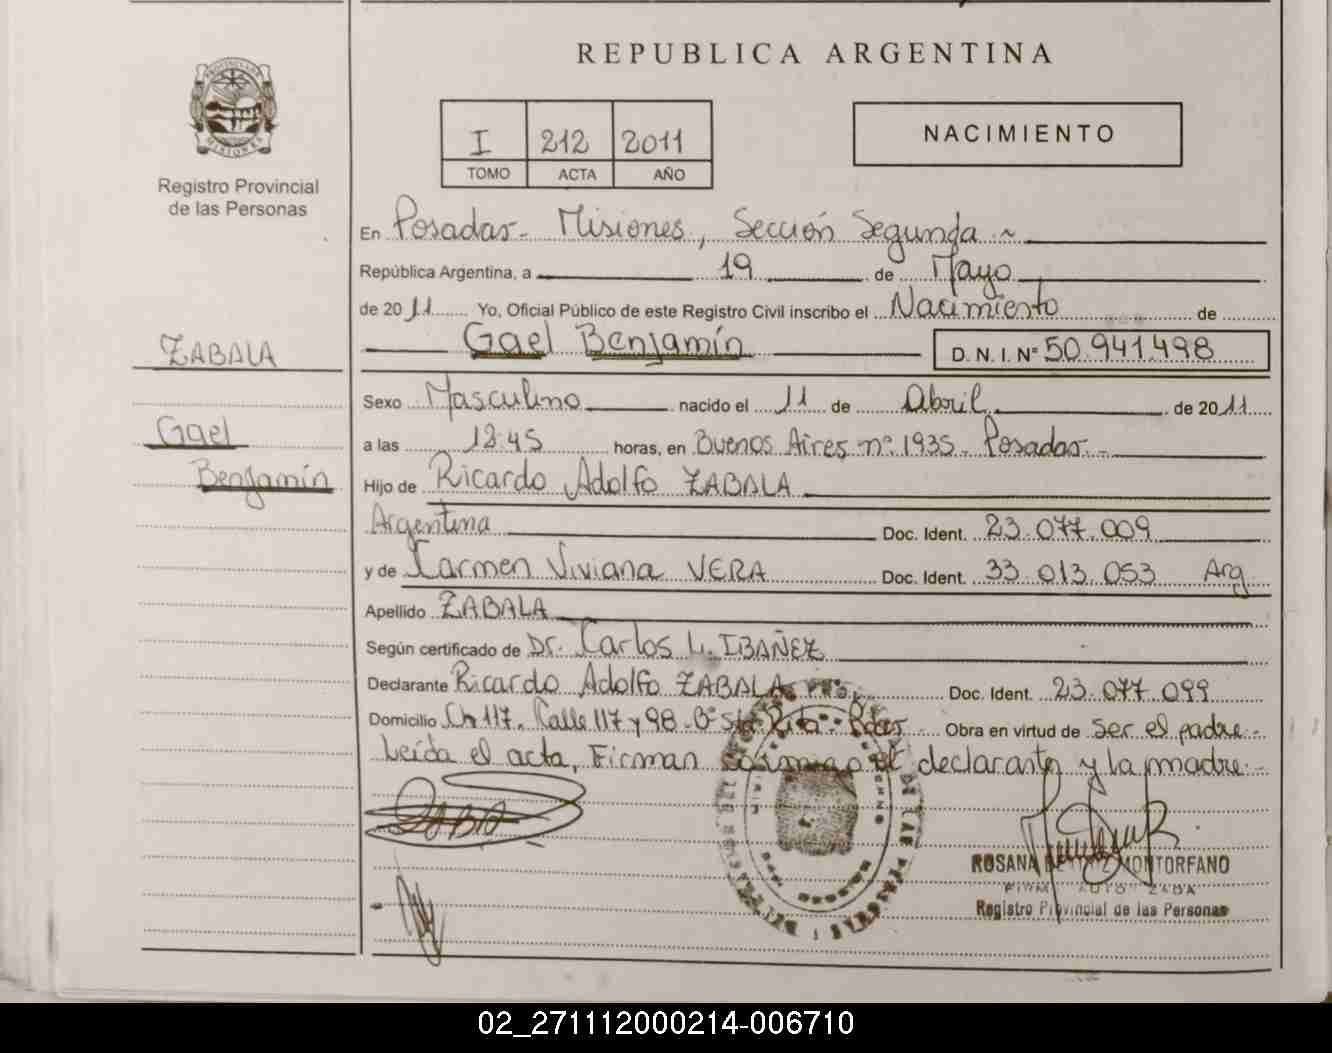 REPUBLICA ARGENTINA
PROVINCIA DE MISIONES
Registro Provincial
de las Personas
I 212 2011
TOMO ACTA AÑO
NACIMIENTO
En Posadas - Misiones, Sección Segunda ~
República Argentina, a 19 de Mayo
de 2011 Yo, Oficial Público de este Registro Civil inscribo el Nacimiento de
Gael Benjamín D. N. I. Nº 50.941.498
ZABALA
Gael
Benjamín
Sexo Masculino nacido el 11 de Abril de 2011
a las 12:45 horas, en Buenos Aires nº 1935 - Posadas -
Hijo de Ricardo Adolfo ZABALA
Argentina Doc. Ident. 23.077.009
y de Carmen Viviana VERA Doc. Ident. 33 013 053 Arg
Apellido ZABALA
Según certificado de Dr. Carlos L. IBAÑEZ
Declarante Ricardo Adolfo ZABALA Doc. Ident. 23 077 099
Domicilio Ch 117. Calle 117 y 98 - Bº Sta Rita - Pdas Obra en virtud de ser el padre -
Leída el acta, Firman conmigo el declarante y la madre -
ROSANA MONTORFANO
Registro Provincial de las Personas
02_271112000214-006710